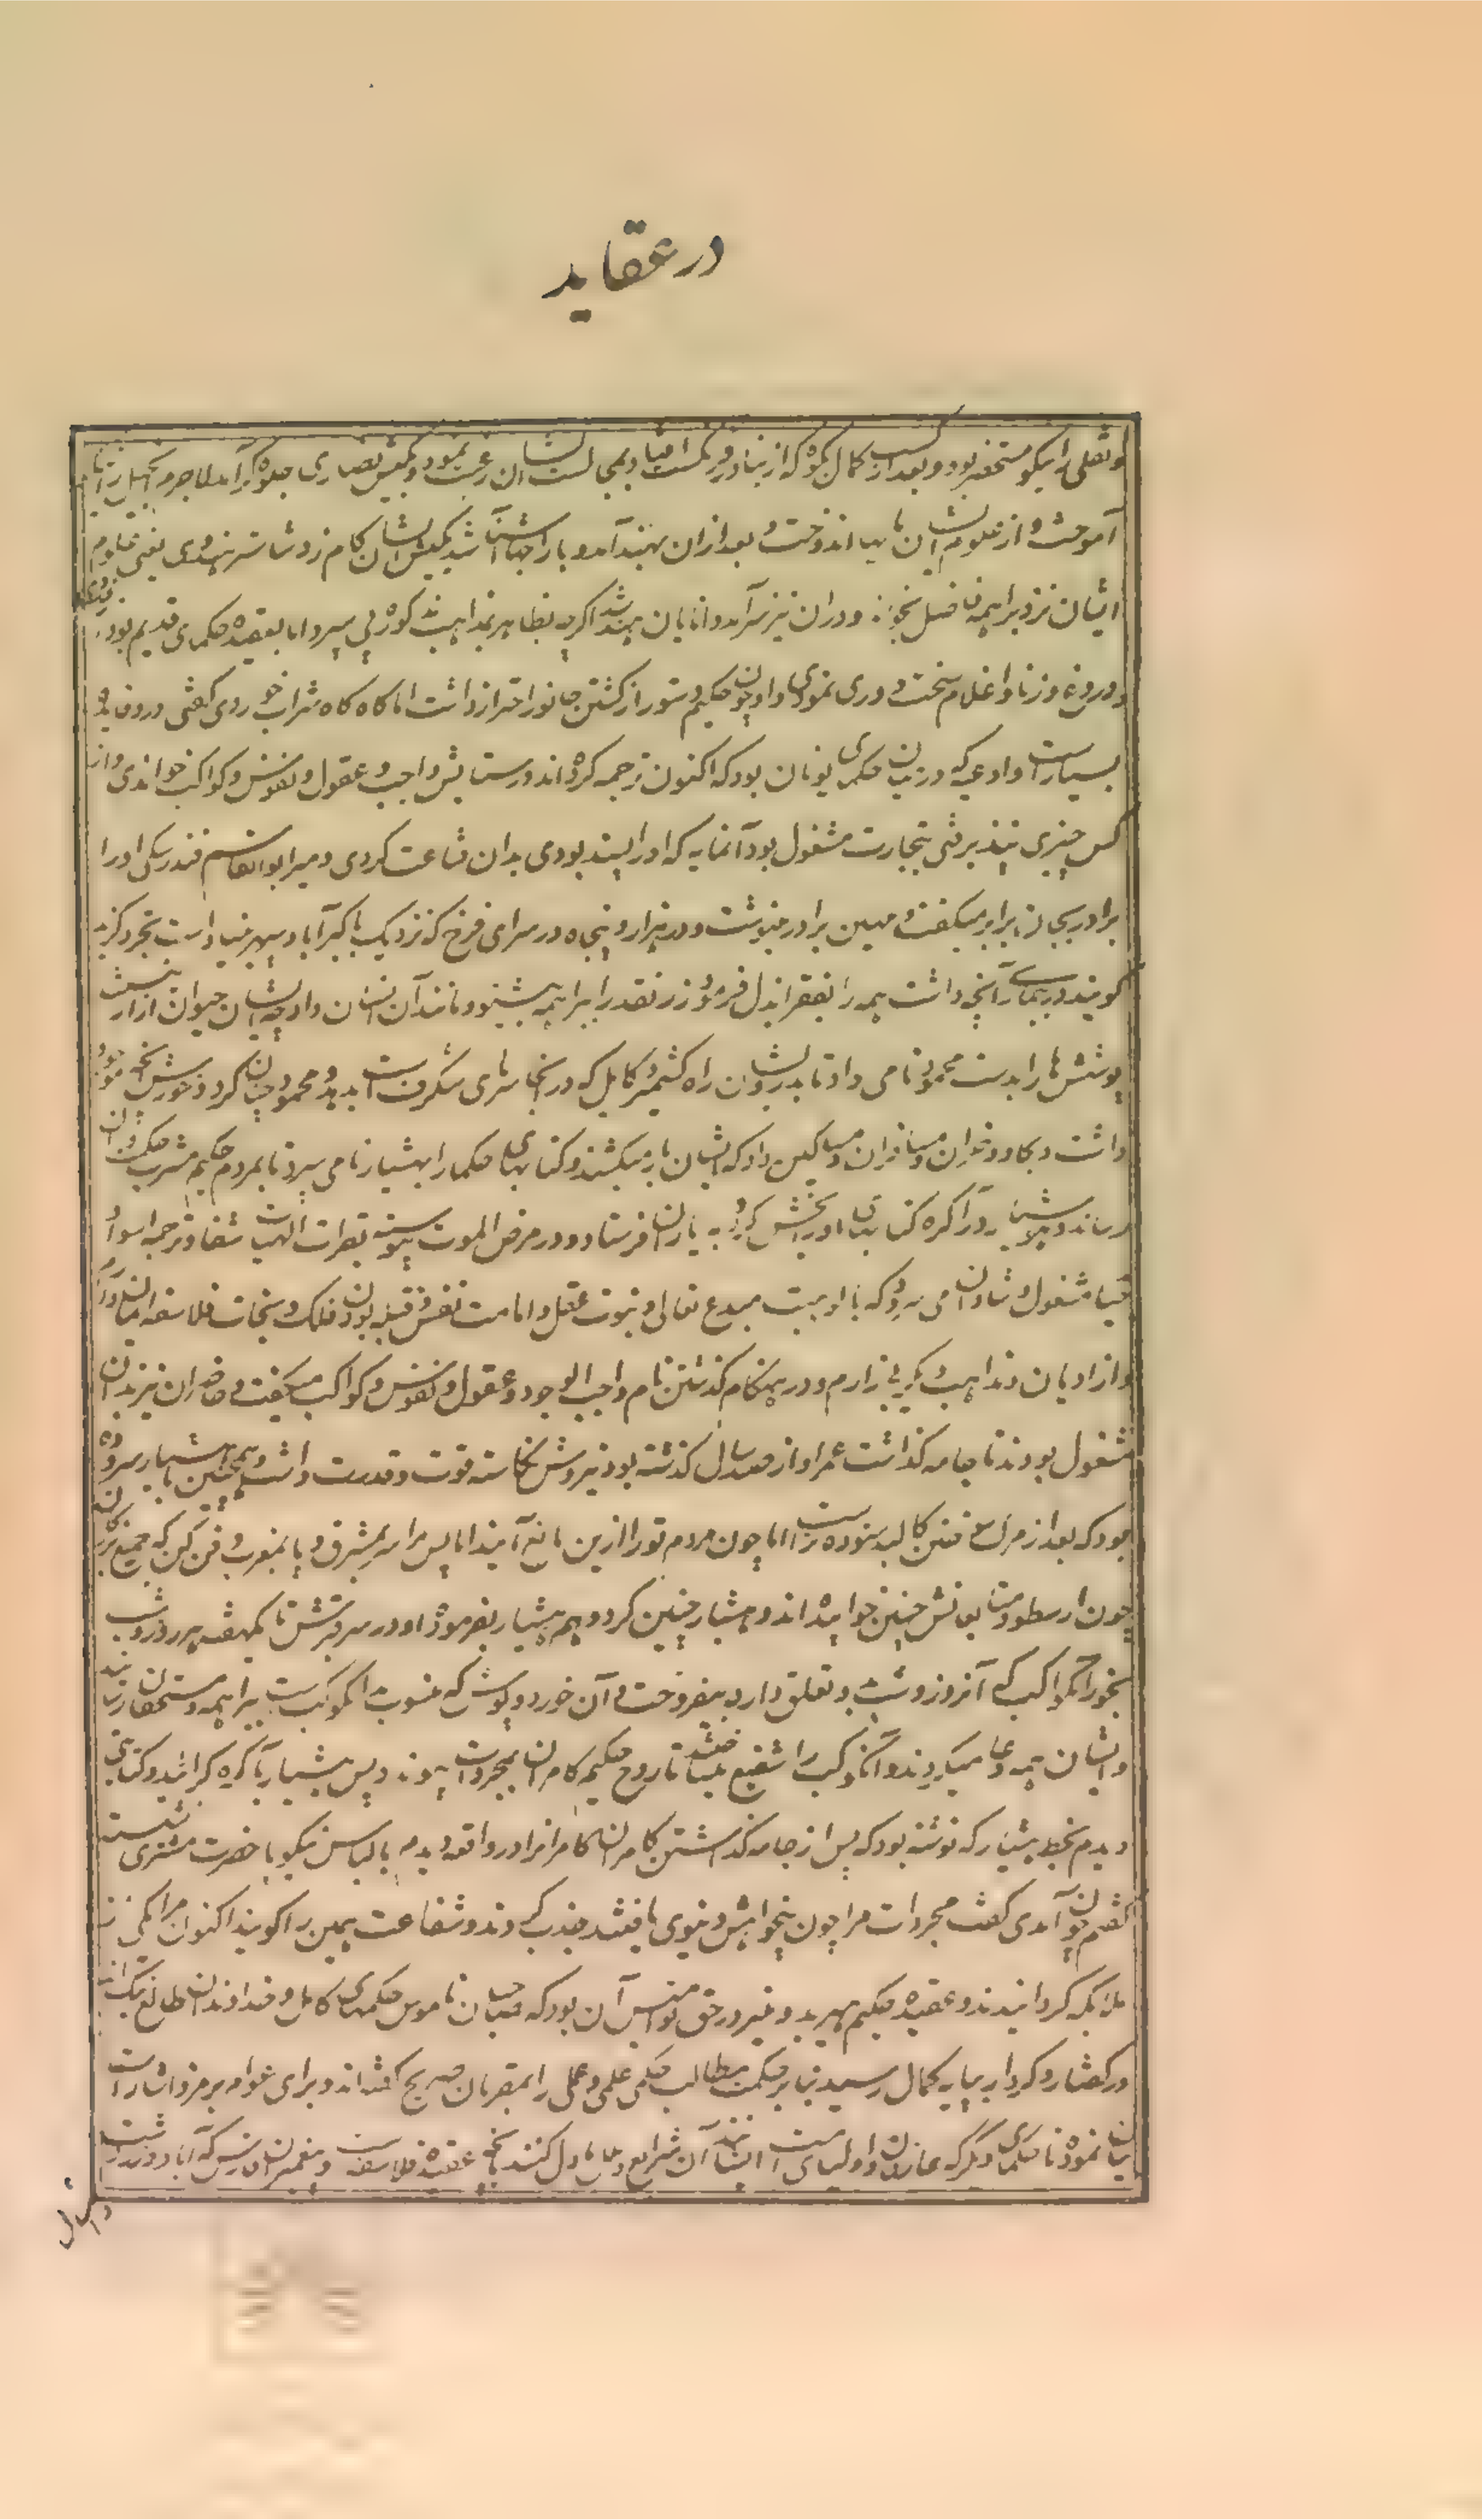 در عقاید
و نقلی را نیکو مستحضر بود و بعد از کسب کمال بکوه که از بنادر فرنگست افتاد و بمجالست ایشان رغبت نمود و کیش نصاری جلوه گر آمد لاجرم انجیل را
آموخت و از علوم ایشان بهره‌ها اندوخت و بعد ازان بهند آمد و با راجها آشنا شد بکیش ایشان گام زد و شاستر هندوی یعنی علوم
ایشان نزد براهمه فاضل بخواند و دران نیز سرآمد دانایان هند شد اگرچه بظاهر بمذاهب مذکوره پی سپرد اما بعقیده حکمای قدیم بود
و دروغ و زنا و اغلام سخت دوری نمودی و او چون حکیم دستور از کشتن جانور احتراز داشت اما گاه گاه شراب خوردی گفتی درو فایده
بسیار است و ادعیه که در زبان حکمای یونان بود که اکنون ترجمه کرده‌اند در ستایش واجب و عقول و نفوس و کواکب خواندی و از
کس چیزی نپذیرفتی بتجارت مشغول بود آنمایه که او را بسند بودی بدان قناعت کردی و میر ابوالقاسم فندرسکی او را
برادر بجان برابر میگفت و مهین برادر مینوشت و در هزار و پنجاه در سرای فرخ که نزدیک باکبرآباد سپهر بنیاد است تجرد گزید
گویند در بیماری آنچه داشت همه را بفقرا بذل فرمود زر نقد را ببراهمه بیشنو و مانند آن
پوشش‌ها را بدست محمود نامی داد تا بدرویشان راه کشمیر و کابل که در آنجا سرمای شگرفست بدهد و محمود چنان کرد و خورش آنچه
داشت و بکاوداران و مسافران و مساکین داد که ایشان بار میکشند و کتابهای حکما را بهشیار نامی سپرد تا بمردم حکیم مشرب
رساند و هوشیار در آگره کتابهای او بخش کرده به یاران فرستاد و در مرض الموت پیوسته بقرات الهیات شفا و ترجمه
مشغول و شادان می‌بود و که بالوهیت مبدع تعالی و نبوت عقل و امامت نفس و قبله بودن فلک و نجات فلاسفه ایمان
و از ادیان و مذاهب دیگر بیزارم و در هنگام گذشتن نام واجب الوجود و عقول و نفوس و کواکب میگفت و حاضران نیز بدان
مشغول بودند تا جامه گذاشت عمر او از صد سال گذشته بود نیروش نکاسته قوت و قدرت داشت و همچنین با هشیار سروده
بود که بعد از مرگ سوختن کالبد ستوده‌تر است اما چون مردم ترا ازین مانع آیند پس مرا سر بمشرق و پا بمغرب دفن کن که جمیع بزرگان
چون ارسطو و متابعانش چنین خوابیده‌اند و هشیار چنین کرد و هم هشیار بفرموده او در سر قبرش تا یکهفته هر روز و شب
بخور آنکواکب که آنروز و شب بدو تعلق دارد بیفروخت و آن خورد و پوشش که منسوب بدانکوکبست ببراهمه و مستحقان رسانید
و ایشان همه دعا میکردند و آنکوکب را شفیع میساختند تا روح حکیم کامران بمجردات پیوندد پس هشیار بآگره گرائید و کتابتی
دیدم بخط هشیار که نوشته بود که پس از جامه گذاشتن کامران کامران را در واقعه دیدم با لباس نیکو با حضرت مشتری نشسته
گفتم چون آمدی گفت مجردات مرا چون بیخواهش دنیوی یافتند جذب کردند و شفاعت همین را گویند اکنون مرا یکی از
ملائکه گردانیدند و عقیده حکیم هیربد و غیر در حق نوامیس آن بود که صاحبان ناموس حکمای کامل و خداوندان طالع نیک‌اند
در گفتار و کردار بپایه کمال رسیده بنابر حکمت مطالب حکمی علمی و عملی را بمقربان صریح گفته‌اند و برای عوام برمز و اشارات
بیان نموده تا حکمای دیگر که عارفان و اولیای امت ایشانند آن شرایع و تاویل کنند عقیده فلاسفه و پیغمبران فارس که آباد و زردشت
دانیال